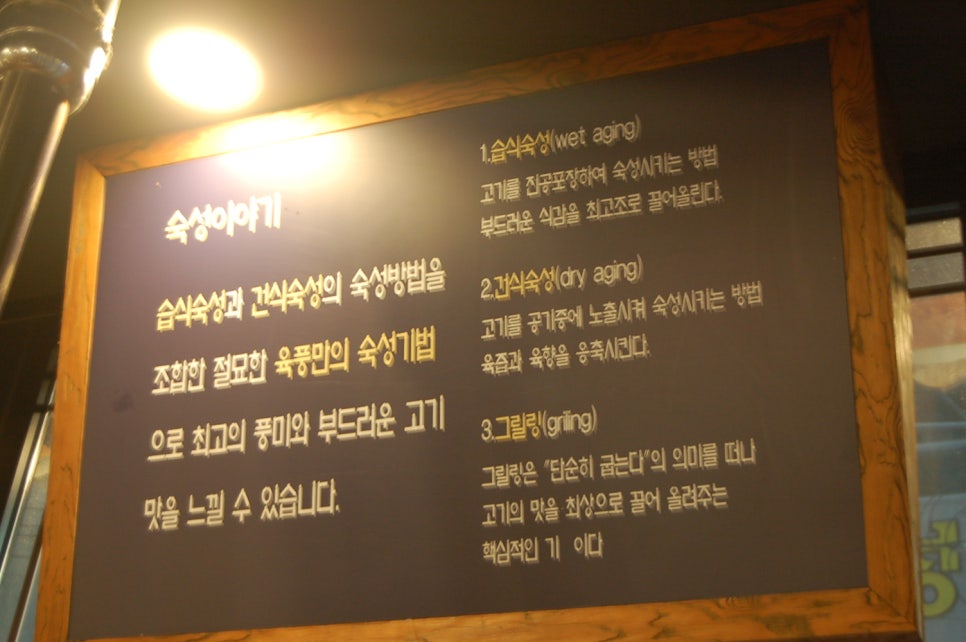 숙성이야기
습식숙성과 건식숙성의 숙성방법을
조합한 절묘한 육풍만의 숙성기법
으로 최고의 풍미와 부드러운 고기
맛을 느낄 수 있습니다.
1.습식숙성(wet aging)
고기를 진공포장하여 숙성시키는 방법
부드러운 식감을 최고조로 끌어올린다.
2.건식숙성(dry aging)
고기를 공기중에 노출시켜 숙성시키는 방법
육즙과 육향을 응축시킨다.
3.그릴링(grilling)
그릴링은 "단순히 굽는다"의 의미를 떠나
고기의 맛을 최상으로 끌어 올려주는
핵심적인 기 이다